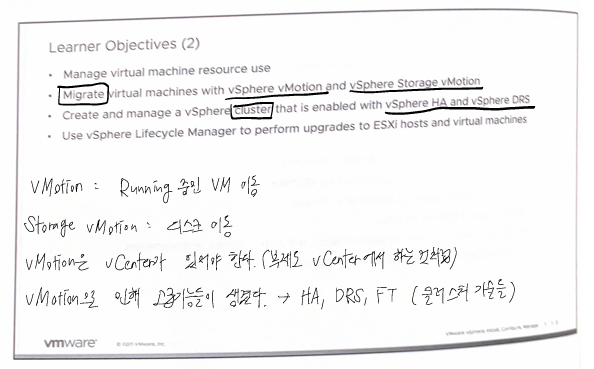 Learner Objectives (2)
• Manage virtual machine resource use
• Migrate virtual machines with vSphere vMotion and vSphere Storage vMotion
• Create and manage a vSphere cluster that is enabled with vSphere HA and vSphere DRS
• Use vSphere Lifecycle Manager to perform upgrades to ESXi hosts and virtual machines
vMotion : Running 중인 VM 이동
Storage vMotion : 디스크 이동
vMotion은 vCenter가 있어야 한다. (복제도 vCenter에서 하는 것처럼)
vMotion으로 인해 고급기능들이 생겼다. → HA, DRS, FT (클러스터 기술들)
vmware
© VMware, Inc.